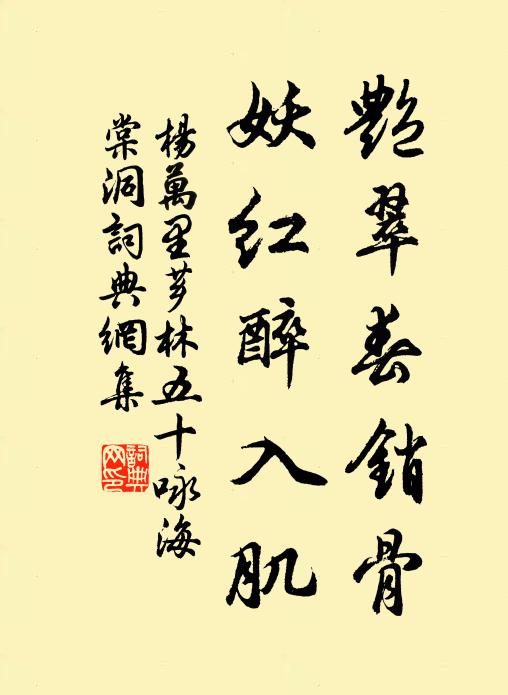 艷翠春銷骨
妖紅醉入肌
楊萬里芗林五十咏海
棠洞詞典網集
詞典
网印